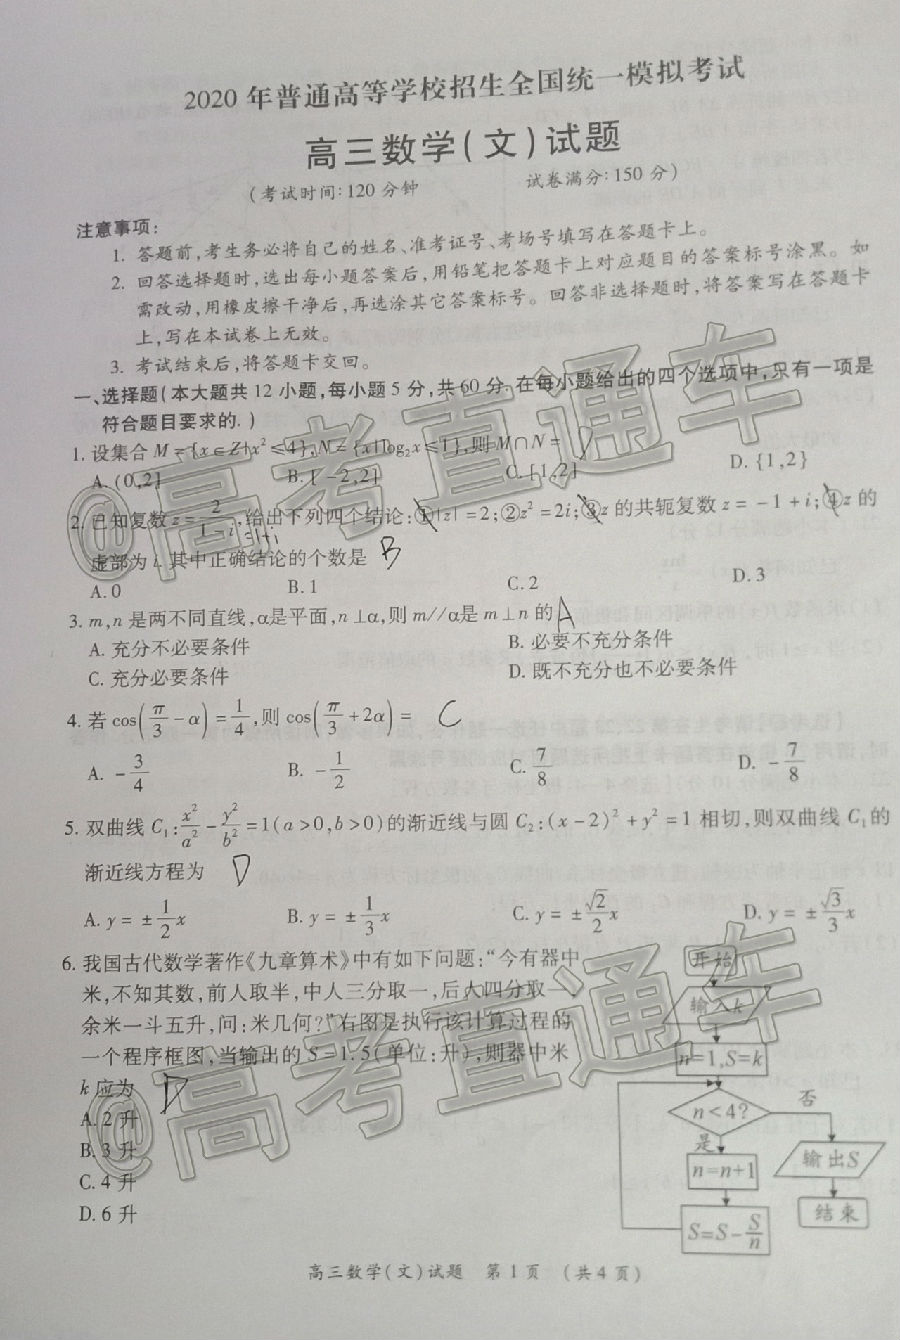 2020 年普通高等学校招生全国统一模拟考试
高三数学(文)试题
(考试时间:120 分钟 试卷满分:150 分)
注意事项:
1. 答题前,考生务必将自己的姓名、准考证号、考场号填写在答题卡上。
2. 回答选择题时,选出每小题答案后,用铅笔把答题卡上对应题目的答案标号涂黑。如
需改动,用橡皮擦干净后,再选涂其它答案标号。回答非选择题时,将答案写在答题卡
上,写在本试卷上无效。
3. 考试结束后,将答题卡交回。
一、选择题(本大题共 12 小题,每小题 5 分,共 60 分. 在每小题给出的四个选项中,只有一项是
符合题目要求的. )
1. 设集合 M = {x∈Z|x² ≤4},N = {x|log₂x≤1},则 M∩N = D
A. (0,2] B. [-2,2] C. {1,2] D. {1,2}
2. 已知复数 z = 2/(1-i),给出下列四个结论:①|z| = 2;②z² = 2i;③z 的共轭复数 z = -1 + i;④z 的
=1+i
虚部为 i. 其中正确结论的个数是 B
A. 0 B. 1 C. 2 D. 3
3. m,n 是两不同直线,α是平面,n⊥α,则 m//α是 m⊥n 的 A
A. 充分不必要条件 B. 必要不充分条件
C. 充分必要条件 D. 既不充分也不必要条件
4. 若 cos(π/3 - α) = 1/4,则 cos(π/3 + 2α) = C
A. -3/4 B. -1/2 C. 7/8 D. -7/8
5. 双曲线 C₁: x²/a² - y²/b² = 1(a>0,b>0)的渐近线与圆 C₂:(x-2)² + y² = 1 相切,则双曲线 C₁的
渐近线方程为 D
A. y = ±1/2 x B. y = ±1/3 x C. y = ±√2/2 x D. y = ±√3/3 x
6. 我国古代数学著作《九章算术》中有如下问题:“今有器中
米,不知其数,前人取半,中人三分取一,后人四分取一,
余米一斗五升,问:米几何?”右图是执行该计算过程的
一个程序框图,当输出的 S = 1.5(单位:升),则器中米
k 应为 D
A. 2 升
B. 3 升
C. 4 升
D. 6 升
开始
输入k
n=1,S=k
n<4?
否
是
n=n+1
输出S
结束
S=S-S/n
高三数学(文)试题 第 1 页 (共 4 页)
@高考直通车
@高考直通车